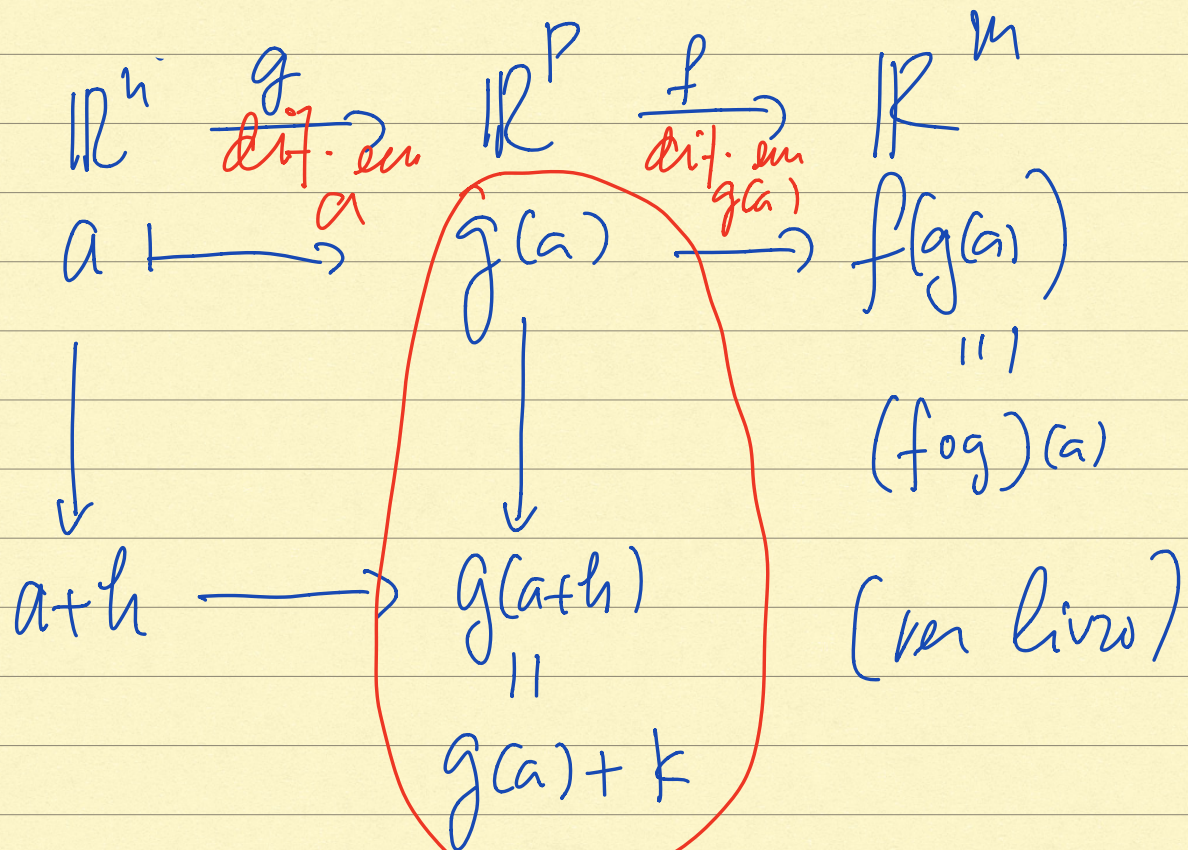 ℝⁿ g ℝᵖ f ℝᵐ
dif. em a dif. em g(a)
a ⟼ g(a) ⟶ f(g(a))
=
(f∘g)(a)
a+h ⟶ g(a+h) (ver livro)
=
g(a)+k